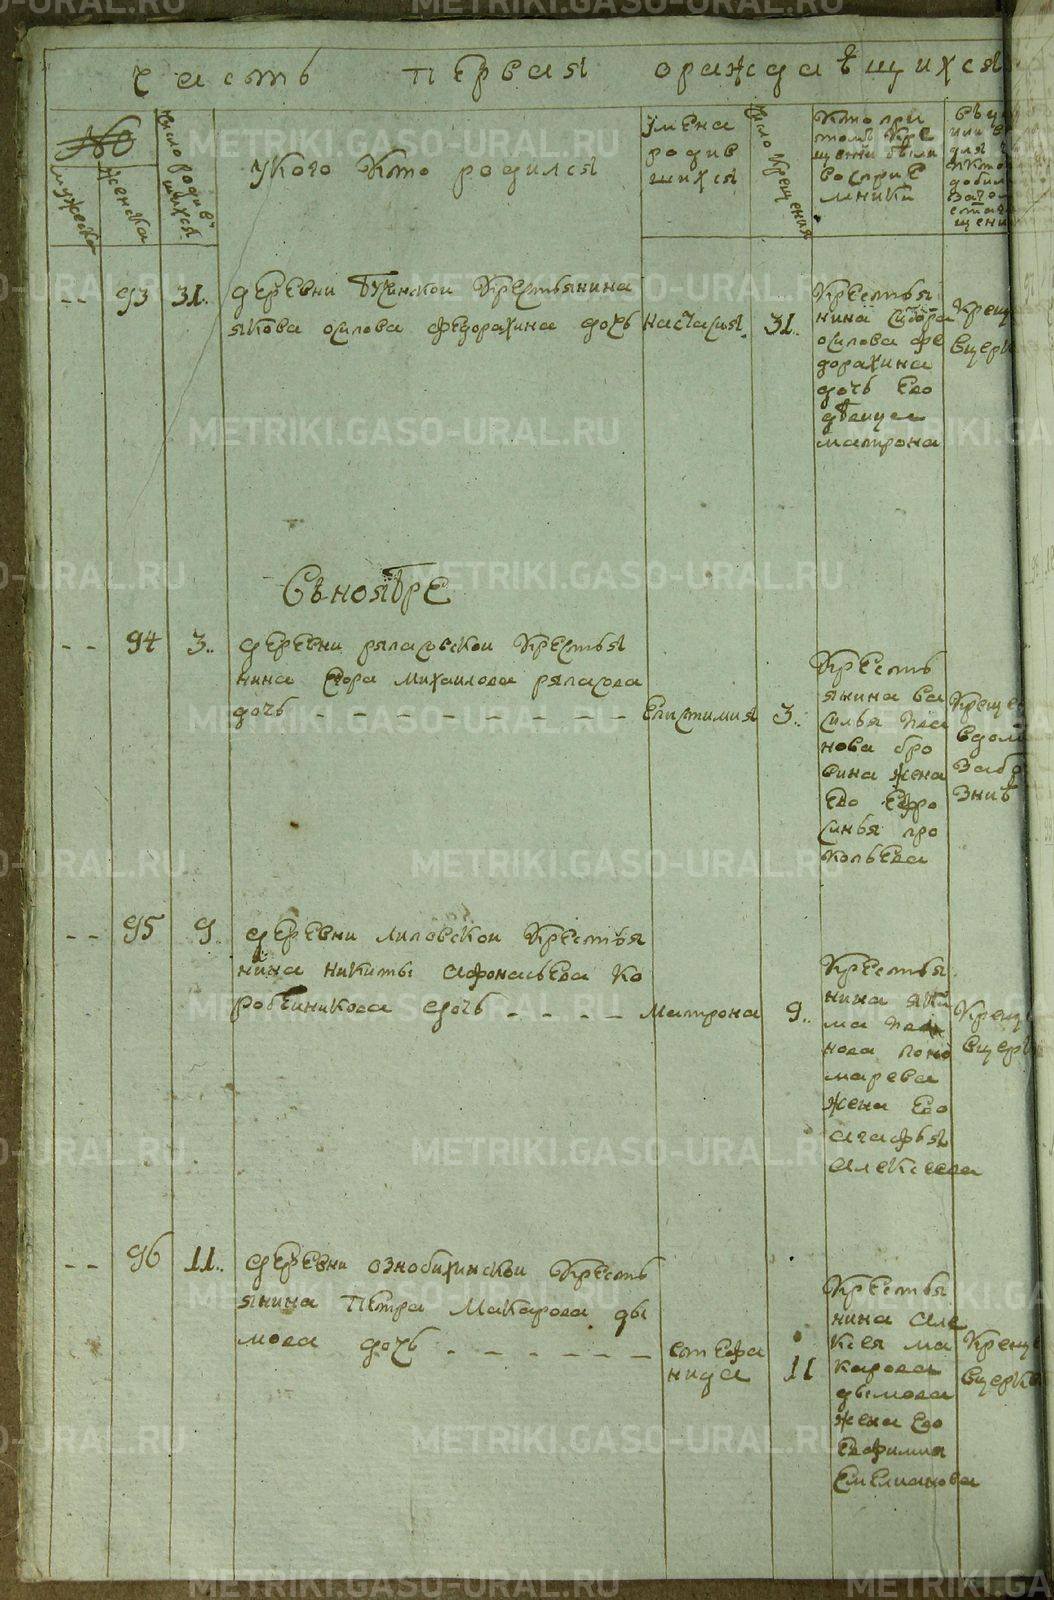 часть первая ораждаѣщихся
№
мужеска
женска
число родив
шихся
Укого Кто родился
Имена
родив
шихся
число крещения
Кто при
томъ кре
щении были
восприе
мники
93 31. деревни Крестьянина
якова осипова федорахина дочь Настасия. 31.
Крестья
нина Сидора
осипова фе
дорахина
дочь Ево
дѣвица
матрона
Крещ
вцерк
Съ ноябре
94 3.. деревни ряпасовской Крестья
нина Егора михаилова ряпасова
дочь - - - - - - - - Епистимия 3..
Кресть
янина Ва
силья Ива
нова бро
вина жена
Ево Ефро
синья про
копьева
Креще
вдом
Забо
Знию
95 9. деревни липовской Крестья
нина Никиты афонасьева Ко
робеиникова дочь - - - - Матрона 9..
Крестья
нина Яки
ма Ива
нова поно
марева
жена Ево
агафья
алексеева
Крещ
вцерк
96 11.. деревни ознобихинской Кресть
янина Петра Макарова ды
мова дочь - - - - - - стефа
нида 11
Крестья
нина але
ксея ма
карова
дымова
жена Ево
Евфимия
Емелианова
Креще
вцеркв